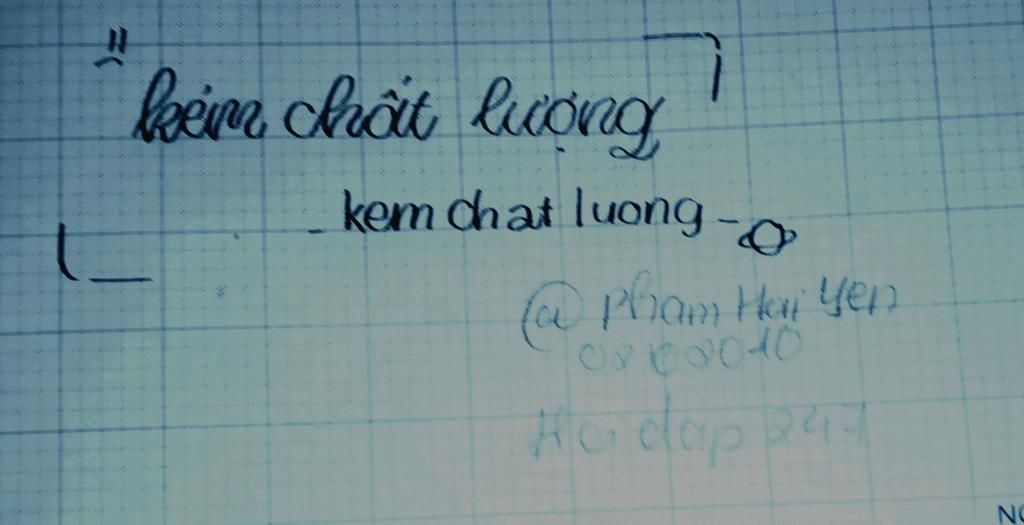 "kém chất lượng
- kem chat luong -
@ PhamHaiYen
08082010
Hoidap247
NO